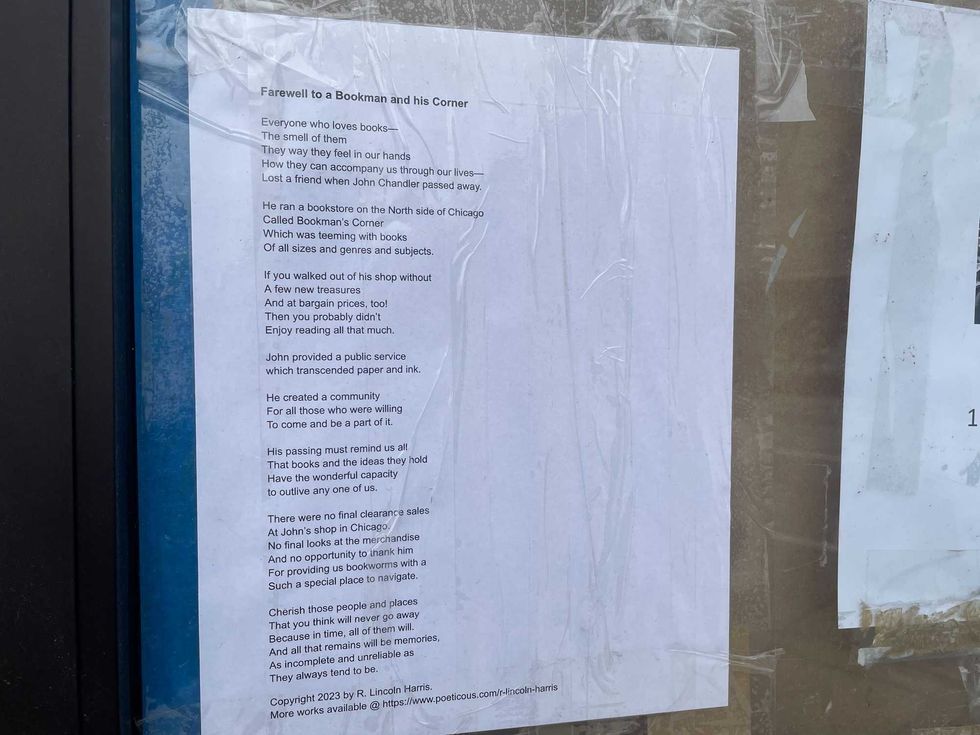 Farewell to a Bookman and his Corner
Everyone who loves books—
The smell of them
They way they feel in our hands
How they can accompany us through our lives—
Lost a friend when John Chandler passed away.
He ran a bookstore on the North side of Chicago
Called Bookman's Corner
Which was teeming with books
Of all sizes and genres and subjects.
If you walked out of his shop without
A few new treasures
And at bargain prices, too!
Then you probably didn't
Enjoy reading all that much.
John provided a public service
which transcended paper and ink.
He created a community
For all those who were willing
To come and be a part of it.
His passing must remind us all
That books and the ideas they hold
Have the wonderful capacity
to outlive any one of us.
There were no final clearance sales
At John's shop in Chicago.
No final looks at the merchandise
And no opportunity to thank him
For providing us bookworms with a
Such a special place to navigate.
Cherish those people and places
That you think will never go away
Because in time, all of them will.
And all that remains will be memories,
As incomplete and unreliable as
They always tend to be.
Copyright 2023 by R. Lincoln Harris.
More works available @ https://www.poeticous.com/r-lincoln-harris
1